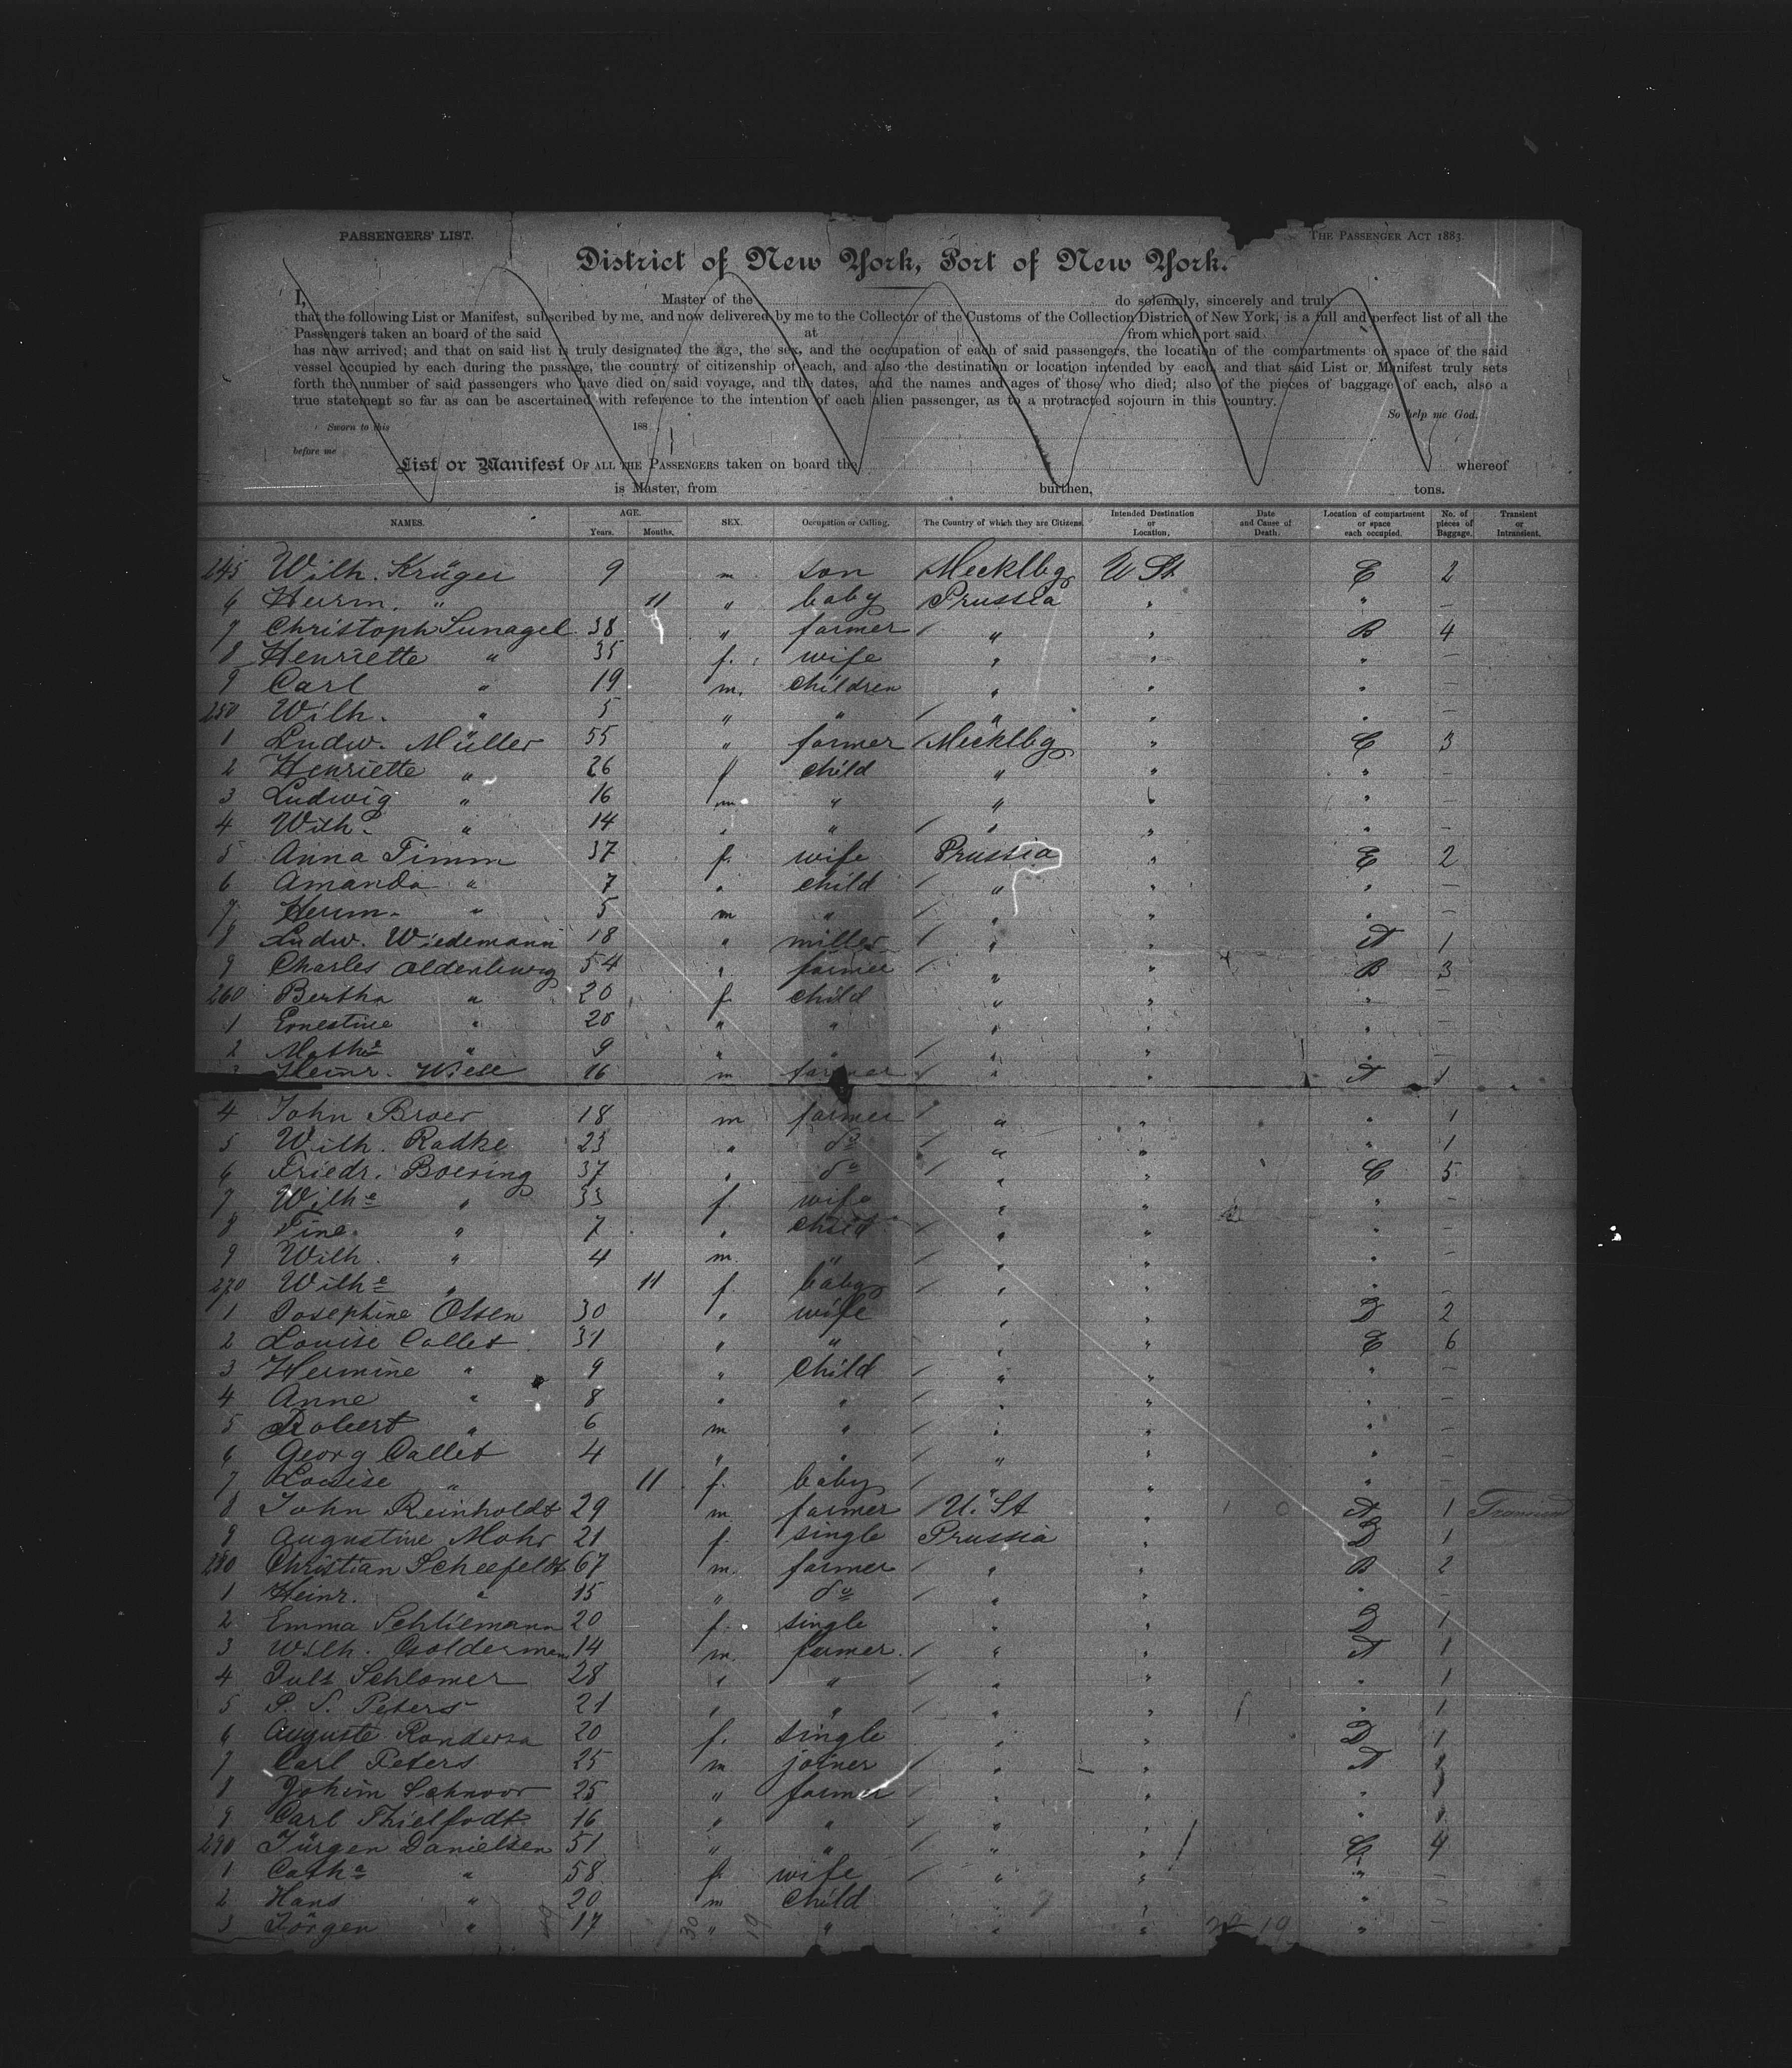 PASSENGERS' LIST. THE PASSENGER ACT 1883.
District of New York, Port of New York.
I, Master of the do solemnly, sincerely and truly
that the following List or Manifest, subscribed by me, and now delivered by me to the Collector of the Customs of the Collection District of New York, is a full and perfect list of all the
Passengers taken an board of the said at from which port said
has now arrived; and that on said list is truly designated the age, the sex, and the occupation of each of said passengers, the location of the compartments or space of the said
vessel occupied by each during the passage, the country of citizenship of each, and also the destination or location intended by each, and that said List or Manifest truly sets
forth the number of said passengers who have died on said voyage, and the dates, and the names and ages of those who died; also of the pieces of baggage of each, also a
true statement so far as can be ascertained with reference to the intention of each alien passenger, as to a protracted sojourn in this country.
So help me God.
Sworn to this 188
before me
List or Manifest OF ALL THE PASSENGERS taken on board the whereof
is Master, from burthen, tons.
NAMES. AGE. Years. Months. SEX. Occupation or Calling. The Country of which they are Citizens. Intended Destination or Location. Date and Cause of Death. Location of compartment or space each occupied. No. of pieces of Baggage. Transient or Intransient.
245 Wilh. Krüger 9 m son Mecklbg U St E 2
6 Herm. " 11 " baby Prussia " " –
7 Christoph Sunagel 38 " farmer " " B 4
8 Henriette " 35 f. wife " " " –
9 Carl " 19 m. children " " " –
250 Wilh. " 5 " " " " " –
1 Ludw. Müller 55 " farmer Mecklbg " C 3
2 Henriette " 26 f child " " " –
3 Ludwig " 16 m " " " " –
4 Wilh. " 14 " " " " " –
5 Anna Timm 37 f. wife Prussia " E 2
6 Amanda " 7 " child " " " –
7 Herm. " 5 m " " " " –
8 Ludw. Wiedemann 18 " miller " " A 1
9 Charles Oldenburg 54 " farmer " " B 3
260 Bertha " 20 f child " " " –
1 Ernestine " 20 " " " " " –
2 Math. " 9 " " " " " –
3 Heinr. Wiese 16 m farmer " " A 1
4 John Broer 18 m farmer " " " 1
5 Wilh. Radke 23 " do " " " 1
6 Friedr. Boering 37 " do " " C 5
7 Wilhe " 33 f. wife " " " –
8 Tine " 7 " child " " " –
9 Wilh. " 4 m. " " " " –
270 Wilhe " 11 f. baby " " " –
1 Josephine Olsen 30 " wife " " D 2
2 Louise Collet 31 " " " " E 6
3 Hermine " 9 " child " " " –
4 Anne " 8 " " " " " –
5 Robert " 6 m " " " " –
6 Georg Collet 4 " " " " " –
7 Louise " 11 f. baby " " " –
8 John Reinholdt 29 m. farmer U. St " A 1
9 Augustine Mohr 21 f. single Prussia " D 1
280 Christian Scheefeldt 67 m. farmer " " B 2
1 Heinr. " 15 " do " " " –
2 Emma Schliemann 20 f. single " " D 1
3 Wilh. Golderman 14 m. farmer " " A 1
4 Juls Schlomer 28 " " " " " 1
5 P. S. Peters 21 " " " " " 1
6 Auguste 20 f. single " " D 1
7 Carl Peters 25 m joiner " " A 1
8 Johim Schnoor 25 " farmer " " "
9 Carl Thielfodt 16 " " " " "
290 Jürgen Danielsen 51 " " " " C 4
1 Catha " 58 f. wife " " " –
2 Hans " 20 m child " " " –
3 Jörgen " 17 " " " " " –